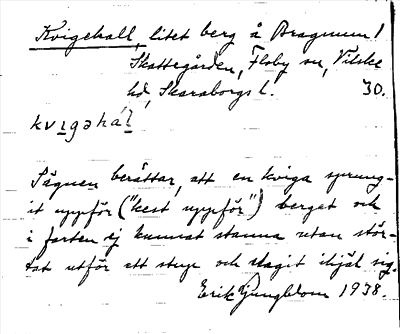 Kvigehall, litet berg å Bragnum 1
Skattegården, Floby sn, Vilske
hd, Skaraborgs l. 30.
kvɪgəhál
Sägnen berättar, att en kviga sprung-
it uppför ("kest uppför") berget och
i farten ej kunnat stanna utan stör-
tat utför ett stup och slagit ihjäl sig.
Erik Ljungblom 1938.